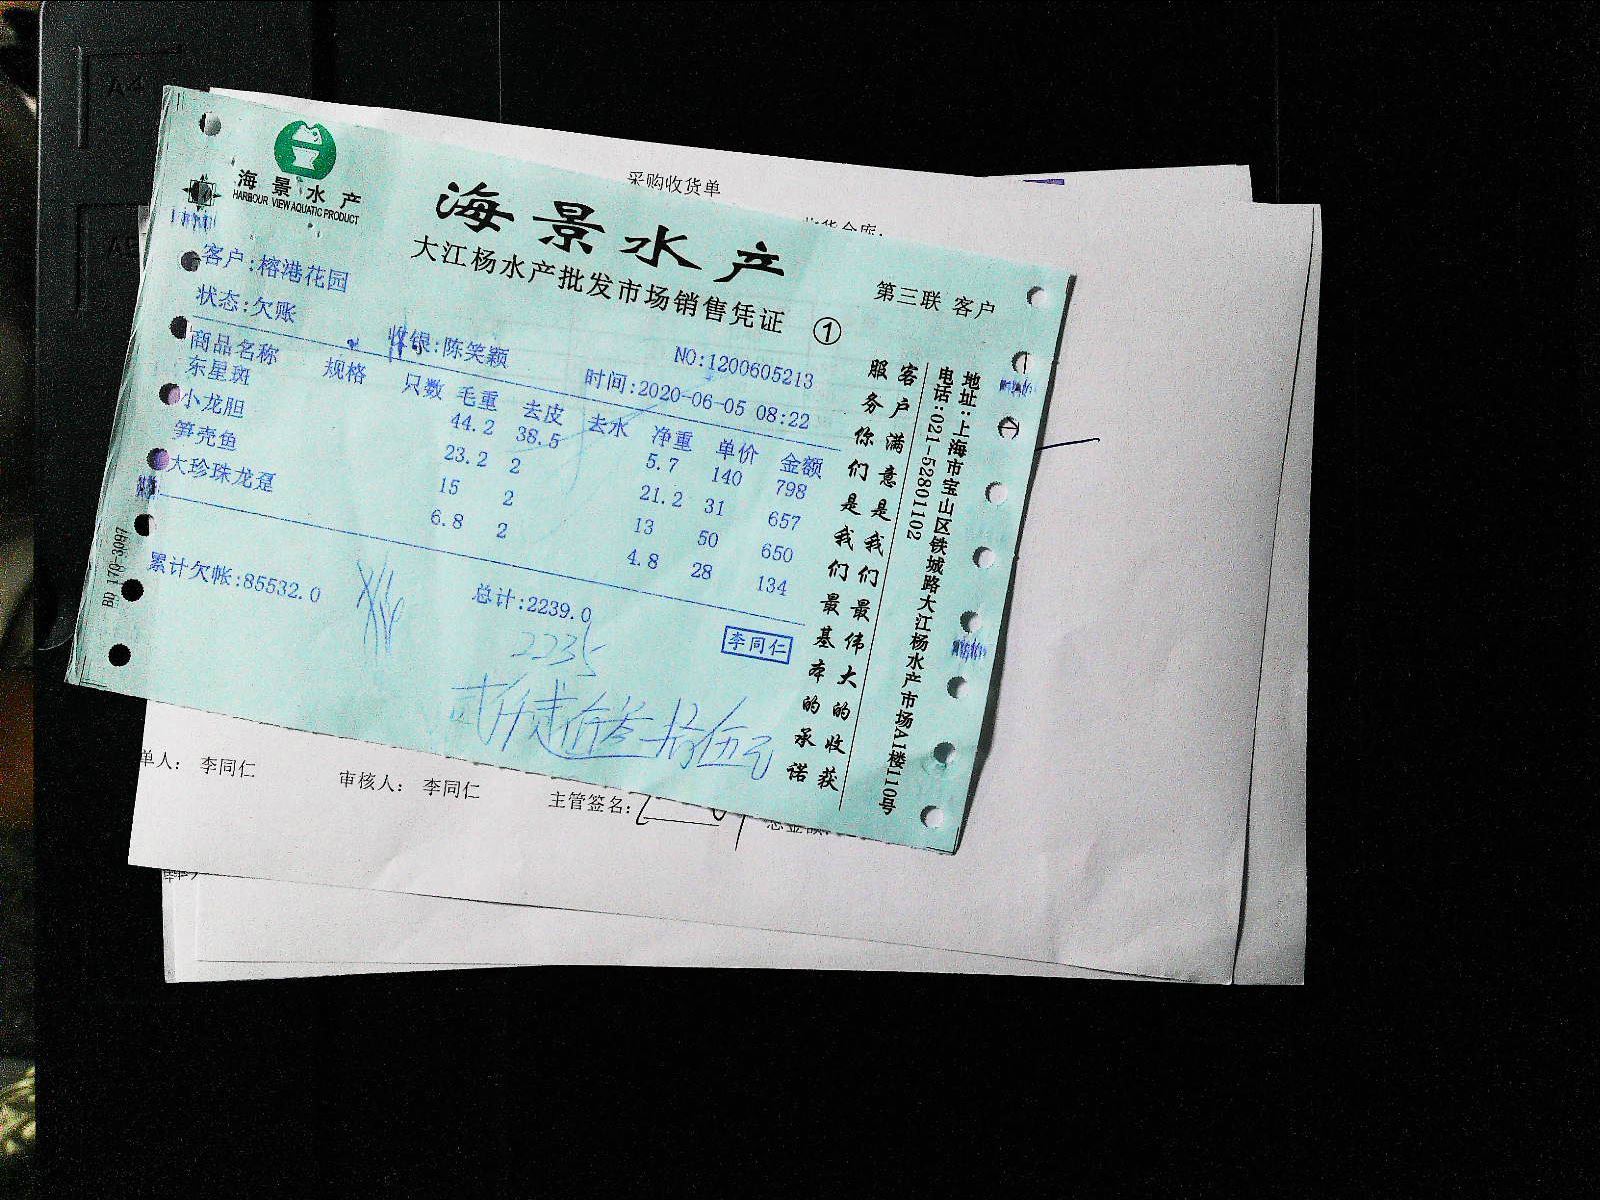 采购收货单
海景水产
HARBOUR VIEW AQUATIC PRODUCT
海景水产
大江杨水产批发市场销售凭证 ①
第三联 客户
客户:榕港花园
状态:欠账
收银:陈笑颖
NO:1200605213
时间:2020-06-05 08:22
商品名称 规格 只数 毛重 去皮 去水 净重 单价 金额
东星斑 44.2 38.5 5.7 140 798
小龙胆 23.2 2 21.2 31 657
笋壳鱼 15 2 13 50 650
大珍珠龙趸 6.8 2 4.8 28 134
累计欠帐:85532.0
总计:2239.0
2235
贰仟贰佰叁拾伍元
李同仁
客户满意是我们最伟大的收获
服务你们是我们最基本的承诺
地址:上海市宝山区铁城路大江杨水产市场A1楼110号
电话:021-52801102
BQ 170-3097
A4
单人: 李同仁
审核人: 李同仁
主管签名: